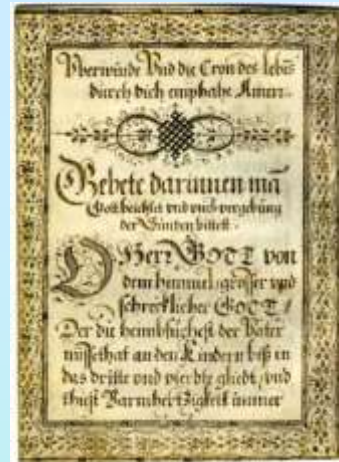 Vberwinde Vnd die Cron des lebens
durch dich empfahe Amen.
Gebete darinnen mā
Gott beichtet vnd vmb vergebūng
der Sünden bittett.
O Herr GOTT von
dem himmel, grosser vnd
schrecklicher GOTT /
Der die heimbsuchest der Väter
missethat an den Kindern biß in
das dritte vnd vierdte gliedt, vnd
thust Barmhertzigkeit immer